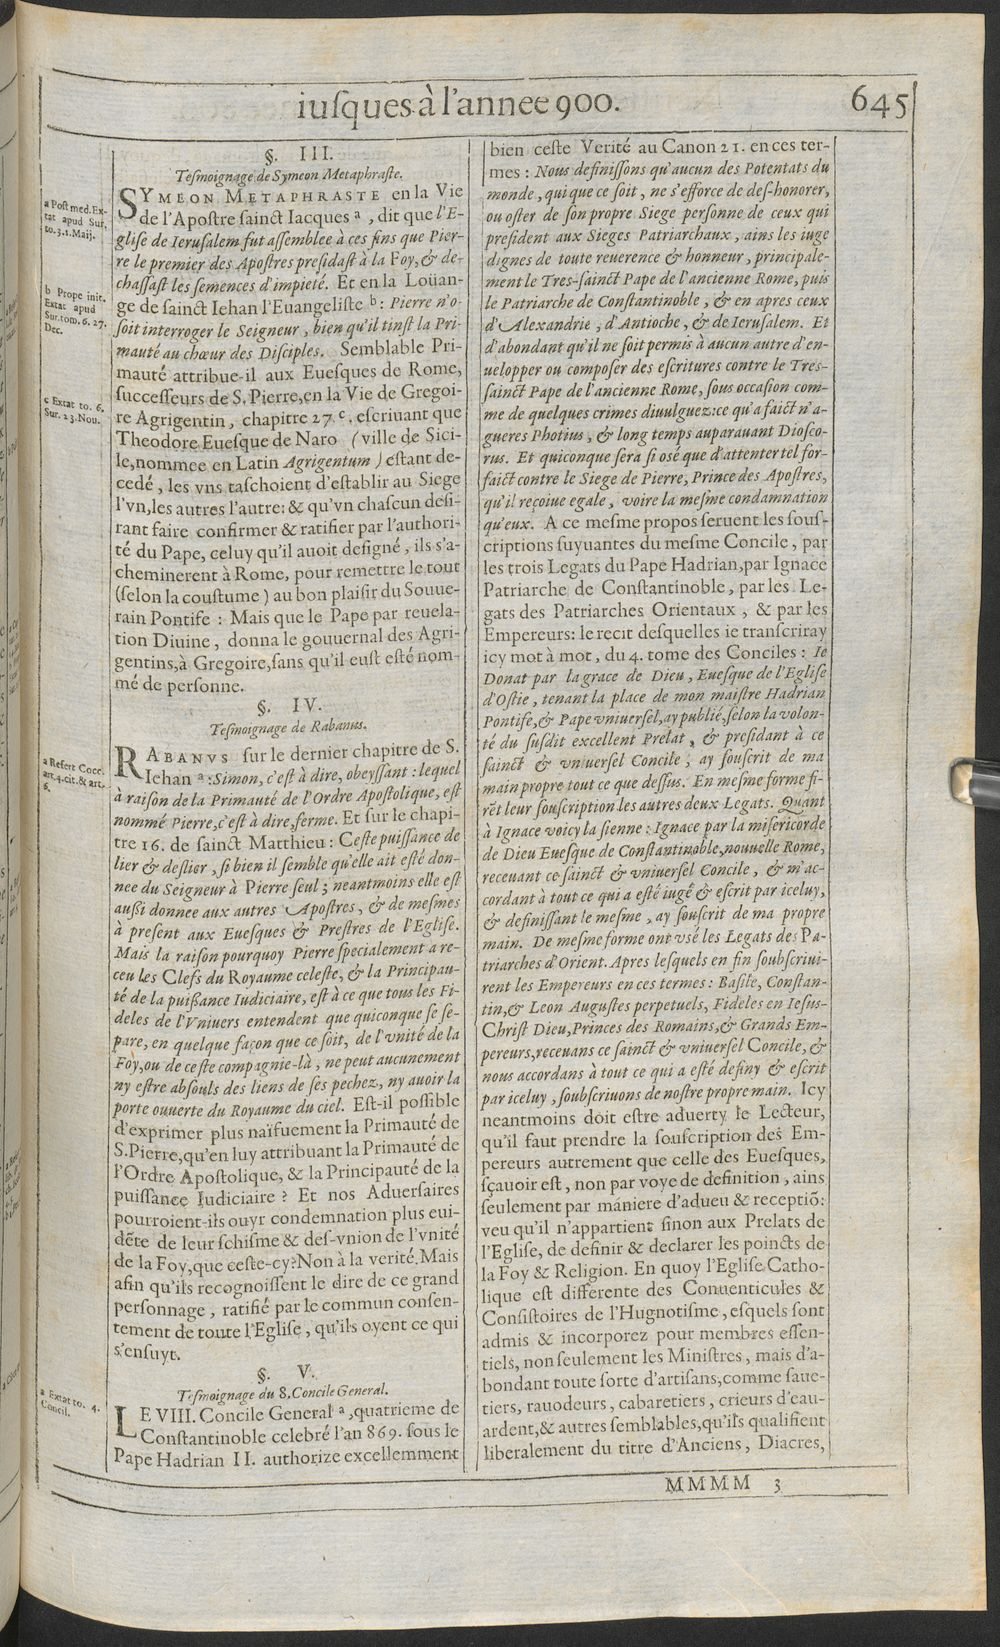 iusques à l'annee 900. 645
§. III.
Tesmoignage de Symeon Metaphraste.
SYMEON METAPHRASTE en la Vie
de l'Apostre sainct Iacques a, dit que l'E-
glise de Ierusalem fut assemblee à ces fins que Pier-
re le premier des Apostres presidast à la Foy, & de-
chassast les semences d'impieté. Et en la Loüan-
ge de sainct Iehan l'Euangeliste b: Pierre n'o-
soit interroger le Seigneur, bien qu'il tinst la Pri-
mauté au chœur des Disciples. Semblable Pri-
mauté attribue-il aux Euesques de Rome,
successeurs de S. Pierre, en la Vie de Gregoi-
re Agrigentin, chapitre 27 c, escriuant que
Theodore Euesque de Naro (ville de Sici-
le, nommee en Latin Agrigentum) estant de-
cedé, les vns taschoient d'establir au Siege
l'vn, les autres l'autre: & qu'vn chascun desi-
rant faire confirmer & ratifier par l'authori-
té du Pape, celuy qu'il auoit designé, ils s'a-
cheminerent à Rome, pour remettre le tout
(selon la coustume) au bon plaisir du Souue-
rain Pontife : Mais que le Pape par reuela-
tion Diuine, donna le gouuernal des Agri-
gentins, à Gregoire, sans qu'il eust esté nom-
mé de personne.
§. IV.
Tesmoignage de Rabanus.
RABANVS sur le dernier chapitre de S.
Iehan a: Simon, c'est à dire, obeyssant : lequel
à raison de la Primauté de l'Ordre Apostolique, est
nommé Pierre, c'est à dire, ferme. Et sur le chapi-
tre 16. de sainct Matthieu : Ceste puissance de
lier & deslier, si bien il semble qu'elle ait esté don-
nee du Seigneur à Pierre seul ; neantmoins elle est
aussi donnee aux autres Apostres, & de mesmes
à present aux Euesques & Prestres de l'Eglise.
Mais la raison pourquoy Pierre specialement a re-
ceu les Clefs du Royaume celeste, & la Principau-
té de la puissance Iudiciaire, est à ce que tous les Fi-
deles de l'Vniuers entendent que quiconque se se-
pare, en quelque façon que ce soit, de l'vnité de la
Foy, ou de ceste compagnie-là, ne peut aucunement
ny estre absouls des liens de ses pechez, ny auoir la
porte ouuerte du Royaume du ciel. Est-il possible
d'exprimer plus naïfuement la Primauté de
S. Pierre, qu'en luy attribuant la Primauté de
l'Ordre Apostolique, & la Principauté de la
puissance Iudiciaire ? Et nos Aduersaires
pourroient-ils ouyr condemnation plus eui-
dẽte de leur schisme & des-vnion de l'vnité
de la Foy, que ceste-cy? Non à la verité. Mais
afin qu'ils recognoissent le dire de ce grand
personnage, ratifié par le commun consen-
tement de toute l'Eglise, qu'ils oyent ce qui
s'ensuyt.
§. V.
Tesmoignage du 8. Concile General.
LE VIII. Concile General a, quatrieme de
Constantinoble celebré l'an 869. sous le
Pape Hadrian II. authorize excellemment
a Post med. Ex-
tat apud Sur.
to. 3. 1. Maij.
b Prope init.
Extat apud
Sur. tom. 6. 27.
Dec.
c Extat to. 6.
Sur. 23. Nou.
a Refert Cocc.
art. 4. cit. & art.
6.
a Extat to. 4.
Concil.
bien ceste Verité au Canon 21. en ces ter-
mes : Nous definissons qu'aucun des Potentats du
monde, qui que ce soit, ne s'efforce de des-honorer,
ou oster de son propre Siege personne de ceux qui
president aux Sieges Patriarchaux, ains les iuge
dignes de toute reuerence & honneur, principale-
ment le Tres-sainct Pape de l'ancienne Rome, puis
le Patriarche de Constantinoble, & en apres ceux
d'Alexandrie, d'Antioche, & de Ierusalem. Et
d'abondant qu'il ne soit permis à aucun autre d'en-
uelopper ou composer des escritures contre le Tres-
sainct Pape de l'ancienne Rome, sous occasion com-
me de quelques crimes diuulguez: ce qu'a faict n'a-
gueres Photius, & long temps auparauant Diosco-
rus. Et quiconque sera si osé que d'attenter tel for-
faict contre le Siege de Pierre, Prince des Apostres,
qu'il reçoiue egale, voire la mesme condamnation
qu'eux. A ce mesme propos seruent les sous-
criptions suyuantes du mesme Concile, par
les trois Legats du Pape Hadrian, par Ignace
Patriarche de Constantinoble, par les Le-
gats des Patriarches Orientaux, & par les
Empereurs: le recit desquelles ie transcriray
icy mot à mot, du 4. tome des Conciles : Ie
Donat par la grace de Dieu, Euesque de l'Eglise
d'Ostie, tenant la place de mon maistre Hadrian
Pontife, & Pape vniuersel, ay publié, selon la volon-
té du susdit excellent Prelat, & presidant à ce
sainct & vniuersel Concile, ay souscrit de ma
main propre tout ce que dessus. En mesme forme fi-
rēt leur souscription les autres deux Legats. Quant
à Ignace voicy la sienne : Ignace par la misericorde
de Dieu Euesque de Constantinoble, nouuelle Rome,
receuant ce sainct & vniuersel Concile, & m'ac-
cordant à tout ce qui a esté iugé & escrit par iceluy,
& definissant le mesme, ay souscrit de ma propre
main. De mesme forme ont vsé les Legats des Pa-
triarches d'Orient. Apres lesquels en fin soubscriui-
rent les Empereurs en ces termes : Basile, Constan-
tin, & Leon Augustes perpetuels, Fideles en Iesus-
Christ Dieu, Princes des Romains, & Grands Em-
pereurs, receuans ce sainct & vniuersel Concile, &
nous accordans à tout ce qui a esté definy & escrit
par iceluy, soubscriuons de nostre propre main. Icy
neantmoins doit estre aduerty le Lecteur,
qu'il faut prendre la souscription des Em-
pereurs autrement que celle des Euesques,
sçauoir est, non par voye de definition, ains
seulement par maniere d'adueu & receptiõ:
veu qu'il n'appartient sinon aux Prelats de
l'Eglise, de definir & declarer les poincts de
la Foy & Religion. En quoy l'Eglise Catho-
lique est differente des Conuenticules &
Consistoires de l'Hugnotisme, esquels sont
admis & incorporez pour membres essen-
tiels, non seulement les Ministres, mais d'a-
bondant toute sorte d'artisans, comme saue-
tiers, rauodeurs, cabaretiers, crieurs d'eau-
ardent, & autres semblables, qu'ils qualifient
liberalement du titre d'Anciens, Diacres,
MMMM 3